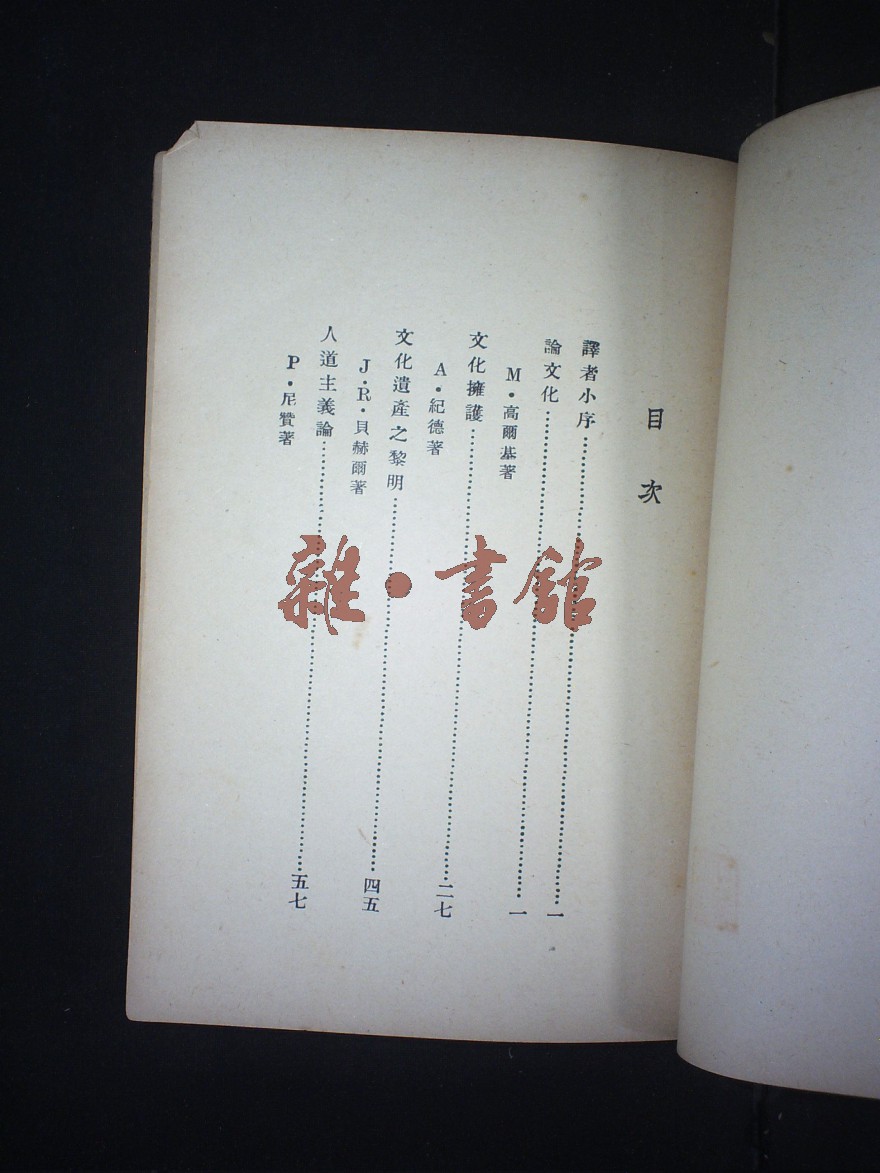 目次
譯者小序……一
論文化……一
M·高爾基著
文化擁護……二七
A·紀德著
文化遺產之黎明……四五
J·R·貝赫爾著
人道主義論……五七
P·尼贊著
雜·書館